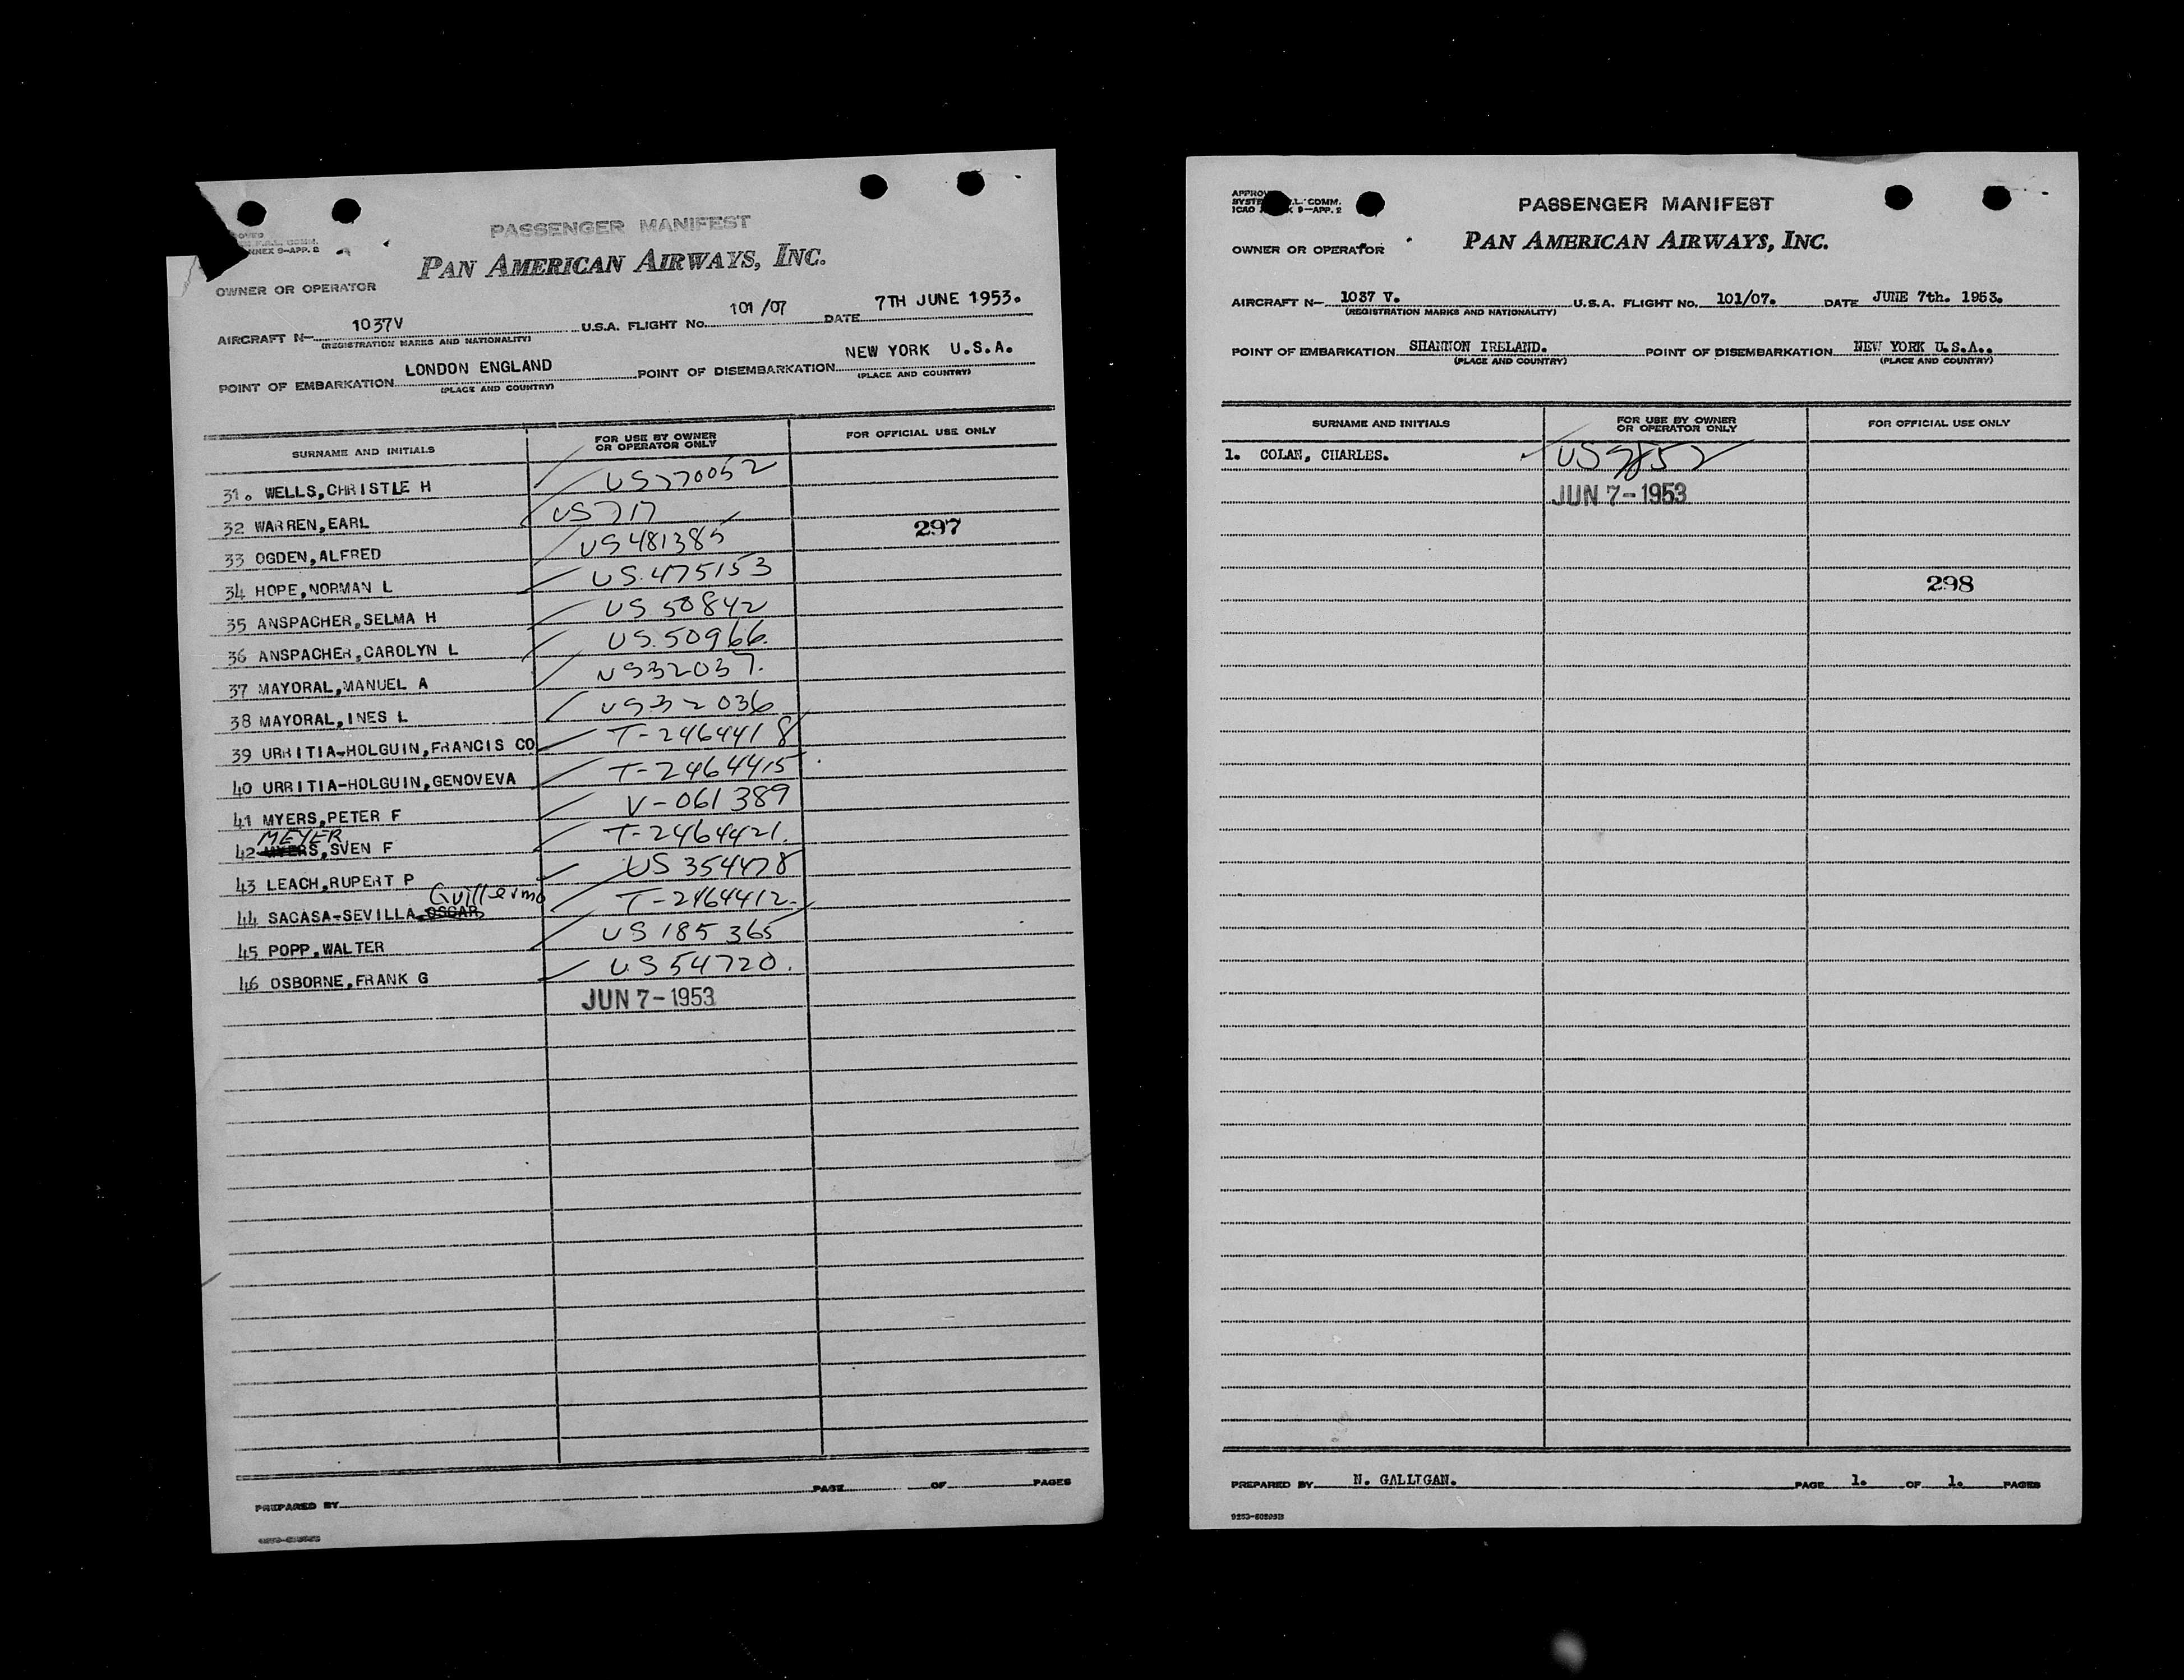 PASSENGER MANIFEST
ANNEX 9-APP. 2
PAN AMERICAN AIRWAYS, INC.
OWNER OR OPERATOR
AIRCRAFT N- 1037V U.S.A. FLIGHT NO. 101/07 DATE 7TH JUNE 1953.
(REGISTRATION MARKS AND NATIONALITY)
POINT OF EMBARKATION LONDON ENGLAND POINT OF DISEMBARKATION NEW YORK U.S.A.
(PLACE AND COUNTRY) (PLACE AND COUNTRY)
SURNAME AND INITIALS FOR USE BY OWNER OR OPERATOR ONLY FOR OFFICIAL USE ONLY
31. WELLS,CHRISTLE H US270052
32 WARREN,EARL US717
33 OGDEN,ALFRED US481385 297
34 HOPE,NORMAN L US.475153
35 ANSPACHER,SELMA H US 50842
36 ANSPACHER,CAROLYN L US.50966.
37 MAYORAL,MANUEL A US32037.
38 MAYORAL,INES L US32036
39 URRITIA-HOLGUIN,FRANCISCO T-2464418
40 URRITIA-HOLGUIN,GENOVEVA T-2464415
41 MYERS,PETER F V-061389
MEYER
42 MYERS,SVEN F T-2464421.
43 LEACH,RUPERT P US 354478
Guillermo
44 SACASA-SEVILLA,OSCAR T-2464412-
45 POPP,WALTER US 185365
46 OSBORNE,FRANK G US54720.
JUN 7-1953
PREPARED BY PAGE OF PAGES
APPRO
SYSTE L. COMM.
ICAO K 9-APP. 2
PASSENGER MANIFEST
PAN AMERICAN AIRWAYS, INC.
OWNER OR OPERATOR
AIRCRAFT N- 1037 V. U.S.A. FLIGHT NO. 101/07. DATE JUNE 7th. 1953.
(REGISTRATION MARKS AND NATIONALITY)
POINT OF EMBARKATION SHANNON IRELAND. POINT OF DISEMBARKATION NEW YORK U.S.A..
(PLACE AND COUNTRY) (PLACE AND COUNTRY)
SURNAME AND INITIALS FOR USE BY OWNER OR OPERATOR ONLY FOR OFFICIAL USE ONLY
1. COLAN, CHARLES.
JUN 7-1953
298
PREPARED BY N. GALLIGAN. PAGE 1. OF 1. PAGES